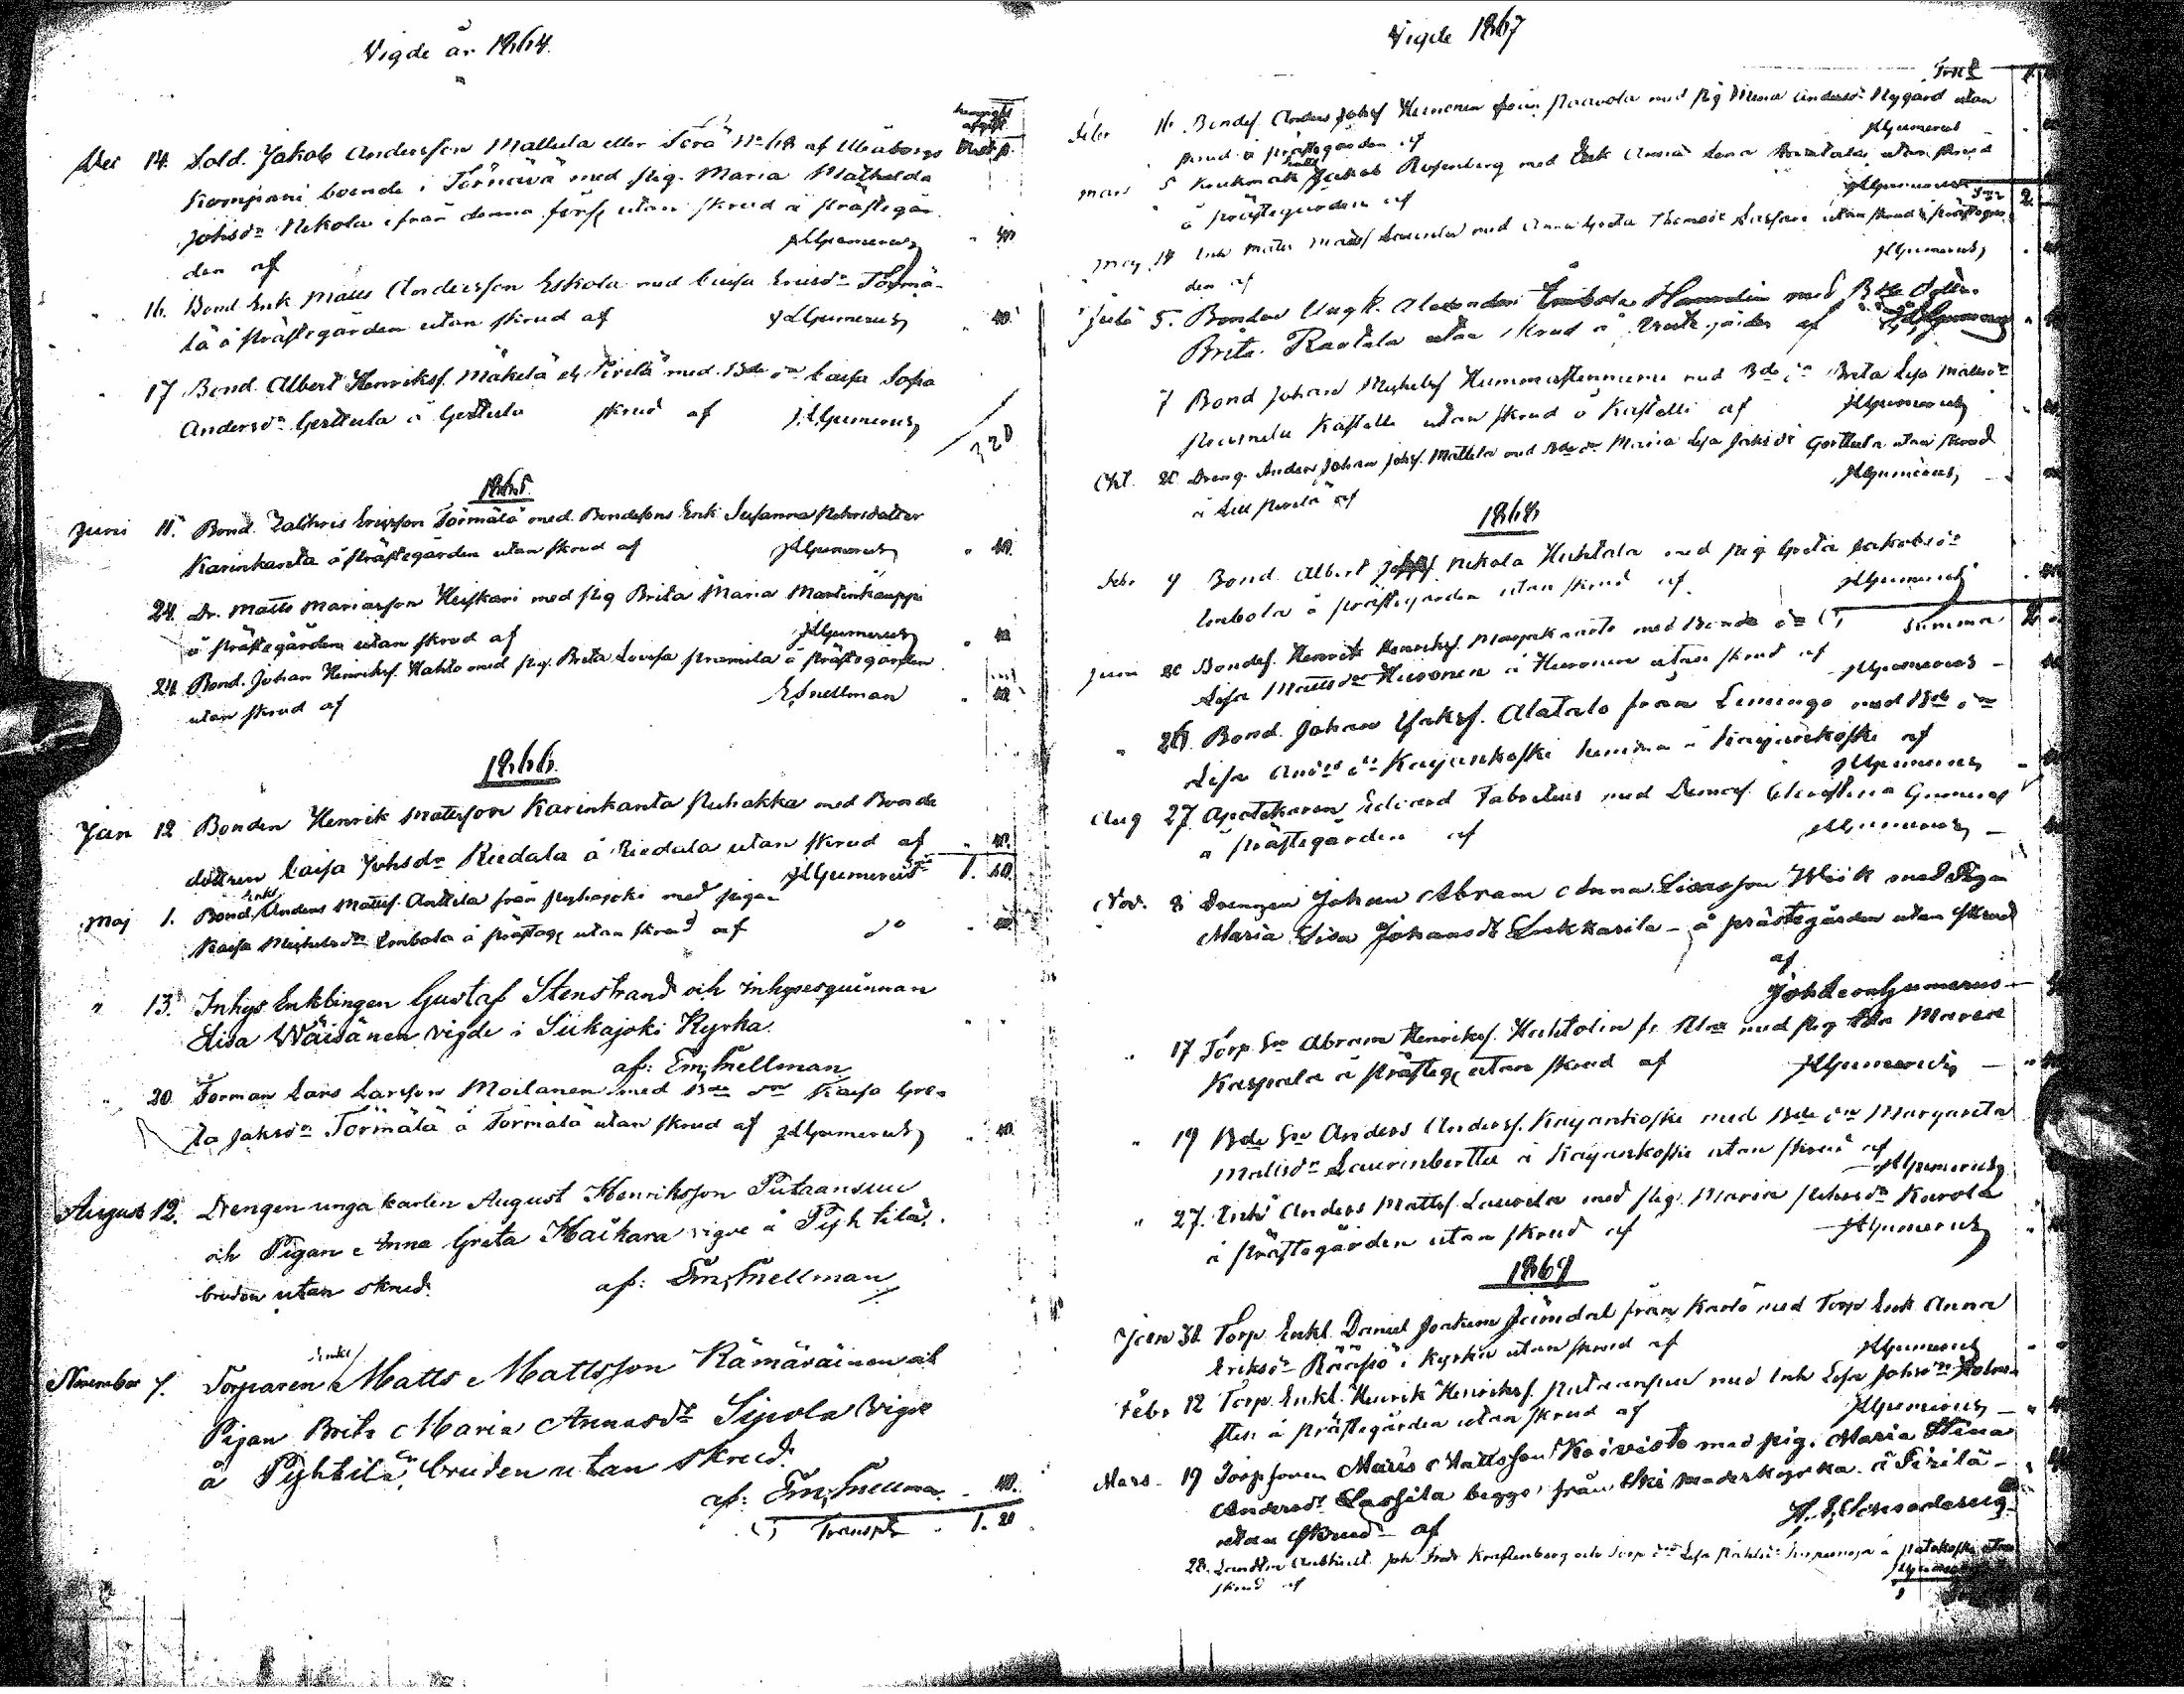 Vigde år 1864.
Dec 14. Sold. Jakob Andersson Mattula eller Törä No 68 af Uleåborgs
Kompani boende i Törnävä med pig. Maria Mathelda
Johsdr Nikola ifrån denna förs. utan skrud å prästegår-
den af JLGumerus 40
16. Bond. Enk. Matts Andersson Eskola med Caisa Ericsdr Törmä-
lä å prästegården utan skrud af JLGumerus 40
17 Bond. Albert Henrikss. Mäkelä eller Pirilä med Bde dr Caisa Sofia
Andersdr Gerttula å Gerttula skrud af JLGumerus
320
1865.
Juni 11. Bond. Zachris Ericsson Törmälä med Bondesons Enk. Susanna Petersdotter
Karinkanta å prästegården utan skrud af JLGumerus 40
24. Dr. Matts Mariasson Heiskari med pig Brita Maria Martinkauppi
å prästegården utan skrud af JLGumerus 40
24. Bond. Johan Henrikss. Hahto med pig. Brita Lovisa Pramila å prästegården
utan skrud af ESnellman 40
1866.
Jan 12 Bonden Henrik Mattsson Karinkanta Ruhakka med Bonde
dottren Caisa Johsdr Reedala å Reedala utan skrud af 40.
JLGumerus 1. 60
Enkl.
Maj 1. Bond. Anders Mattss. Anttila från Pyhäjoki med pigan
Kaisa Michelsdr Lonbola å prästeg. utan skrud af do
" 13. Inhys Enklingen Gustaf Stenstrand och inhysesquinnan
Lisa Wäisänen vigde i Siikajoki Kyrka.
af: Em. Snellman
" 20. Torman Lars Larsson Moilanen med Bde dr Kaisa Gre-
ta Jaksdr Törmälä å Törmälä utan skrud af JLGumerus 40
August 12. Drengen unga karlen August Henriksson Putaansuu
och Pigan Anna Greta Haikara vigde å Pyhtilä,
bruden utan skrud. af: Em. Snellman
Enkl.
November 7. Torparen Matts Mattsson Rämäräinen och
Pigan Brita Maria Annasdr Sipola vigde
å Pyhtilä, bruden utan skrud.
af: Em. Snellman 40.
Transp. 1. 20
Vigde 1867
Febr 16. Bondes. Anders Johss. Heinonen från Paavola med pig Andersdr Nygård utan
skrud å prästegården af JLGumerus
Mars 5 Jakob Rosenberg med Enk. Anna Lena utan skrud
å prästegården af JLGumerus
Maj 14 Inh. Matts Mattss. Laurila med Anna Greta Thomasdr utan skrud å prästegår-
den af JLGumerus
Juli 5. Bonden Ungk. Alexander med Bde dottr.
Brita Rautala utan skrud å prästegården af JLGumerus
7 Bond Johan Michelss. Hummastenniemi med Bde dr Brita Lisa Mattsdr
Kastelli utan skrud å Kastelli af JLGumerus
Okt. 20. Dreng. Anders Johan Johss. Mattila med Bde dr Maria Lisa Jaksdr Gerttula utan skrud
å Lill Pirilä af JLGumerus
1868
Febr 9 Bond. Albert Nikola Huhtala med pig Greta Jakobsdr
Lonbola å prästegården utan skrud af JLGumerus
Summa
Juni 20 Bondes. Henrik Henrikss. med Bonde dr
Lisa Mattsdr Huronen å Huronen utan skrud af JLGumerus
" 26. Bond. Johan Jakss. Alatalo från Limingo med Bde dr
Lisa Andrsdr Kayankoski hemma å Kayankoski af
JLGumerus
Aug 27 Apotekaren Edvard Fabritius med Demois. Christina Gumerus
å prästegården af JLGumerus
Nov. 8 Drengen Johan Abram Anna Lisasson Wiik med Pigan
Maria Lisa Johansdr Lukkarila - å prästegården utan skrud
af
Joh Leon Gumerus
" 17 Torp. Sn Abram Henrikss. Huhtolin med pig Maria
Kaspala å prästeg. utan skrud af JLGumerus
" 19 Bde Sn Anders Anderss. Kayankoski med Bde dr Margareta
Mattsdr Laurinberttu å Kayankoski utan skrud af
JLGumerus
" 27. Enkl. Anders Mattss. Laurila med pig. Maria Petersdr Karola
å prästegården utan skrud af JLGumerus
1869
Jan 31 Torp. Enkl. Daniel Joakim Jämdal från Karlö med Torp. Enk. Anna
Eriksdr Rääpsö i Kyrkan utan skrud af JLGumerus
Febr 12 Torp. Enkl. Henrik Henrikss. Putaansuu med Inh. Lisa Johsdr
å prästegården utan skrud af JLGumerus
Mars 19 Torpsonen Matts Mattsson Koivisto med pig. Maria Stina
Andersdr Lassila begge från moderkyrka å Pirilä
utan skrud af
28. Joh. Fredr Krestenberg och Torp. dr Lisa å Patokoski utan
skrud af JLGumerus